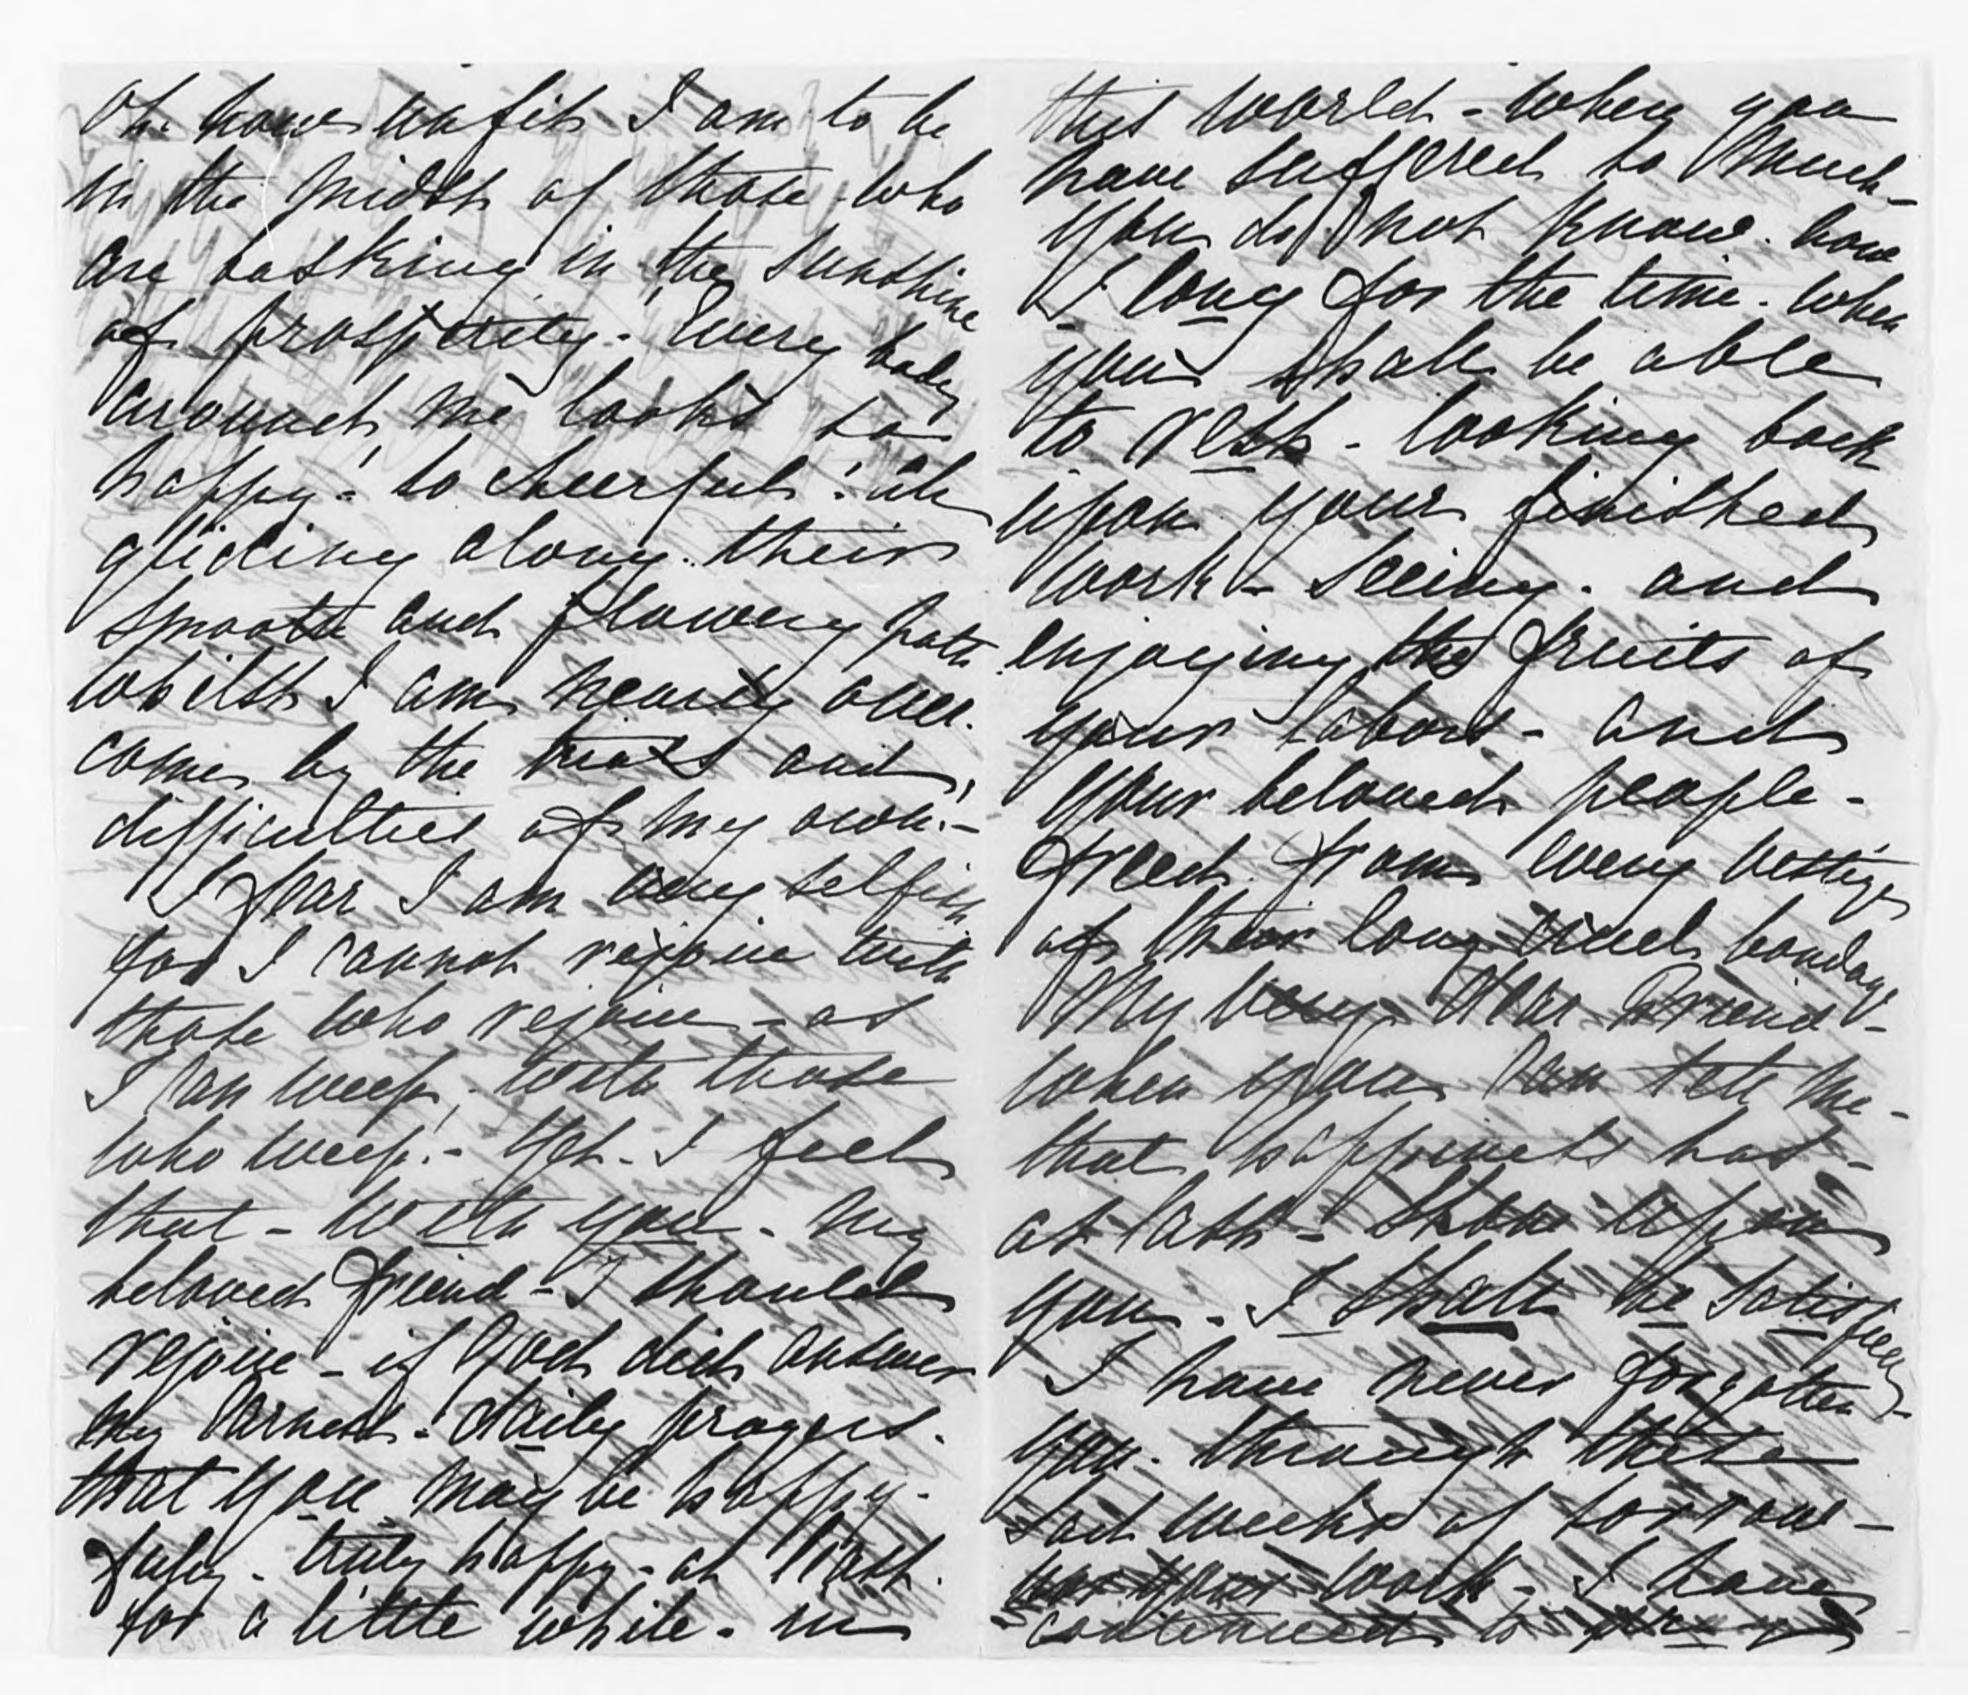 Oh. how unfit I am to be
in the midst of those who
are basking in the sunshine
of prosperity - Every body
around me looks so
happy - so cheerful! all
gliding along their
smooth and flowery path
whilst I am nearly over-
come by the trials and
difficulties of my own! -
I fear I am very selfish
for I cannot rejoice with
those who rejoice - as
I can weep - with those
who weep. - Yet - I feel
that - with you - my
beloved friend - I should
rejoice - if God did answer
my earnest - daily prayers.
that you may be happy -
fully - truly happy - at least.
for a little while - in
this world - when you
have suffered so much -
You do not know how
I long for the time - when
you shall be able
to rest - looking back
upon your finished
work - seeing - and
enjoying the fruits of
your labors - and
your beloved people -
freed from every vestige
of their long cruel bondage
My very dear Friend -
when you can tell me -
that happiness has -
at last - shone upon
you - I shall be satisfied -
I have never forgotten
you - through these
sad weeks of sorrow -
nor your work - I have
continued to pray